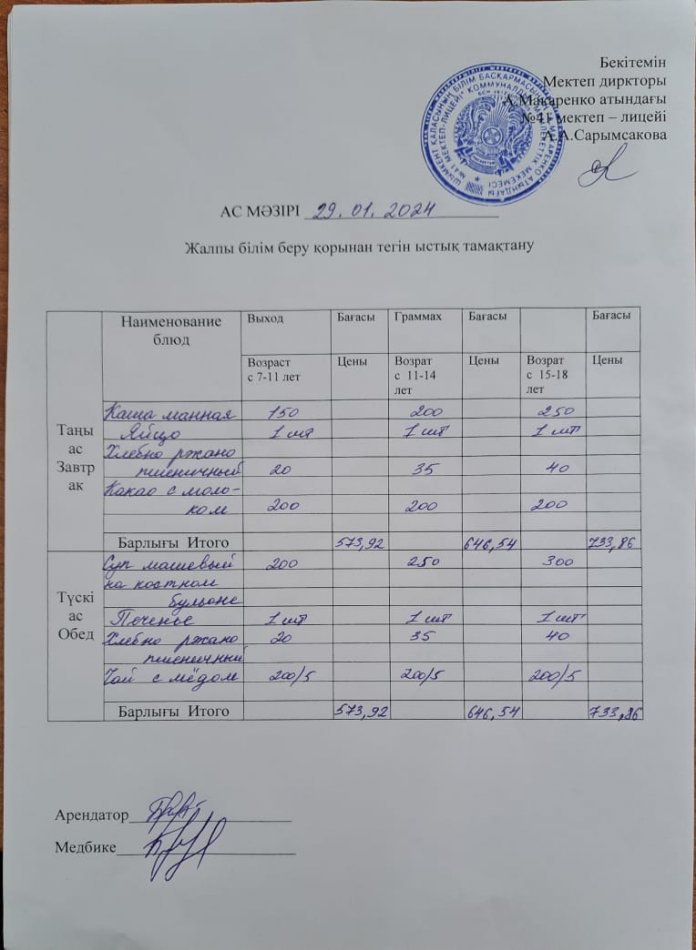 Бекітемін
Мектеп диркторы
А.Макаренко атындағы
№41 мектеп – лицейі
А.А.Сарымсакова
АС МӘЗІРІ 29.01.2024
Жалпы білім беру қорынан тегін ыстық тамақтану
Наименование блюд Выход Бағасы Граммах Бағасы Бағасы
Возраст с 7-11 лет Цены Возрат с 11-14 лет Цены Возрат с 15-18 лет Цены
Таңы ас Завтрак
Каша манная 150 200 250
Яйцо 1 шт 1 шт 1 шт
Хлебно ржано
пшеничный 20 35 40
Какао с моло-
ком 200 200 200
Барлығы Итого 573,92 646,54 733,86
Түскі ас Обед
Суп машевый 200 250 300
на костном
бульоне
Печенье 1 шт 1 шт 1 шт
Хлебно ржано 20 35 40
пшеничный
Чай с мёдом 200/5 200/5 200/5
Барлығы Итого 573,92 646,54 733,86
Арендатор
Медбике